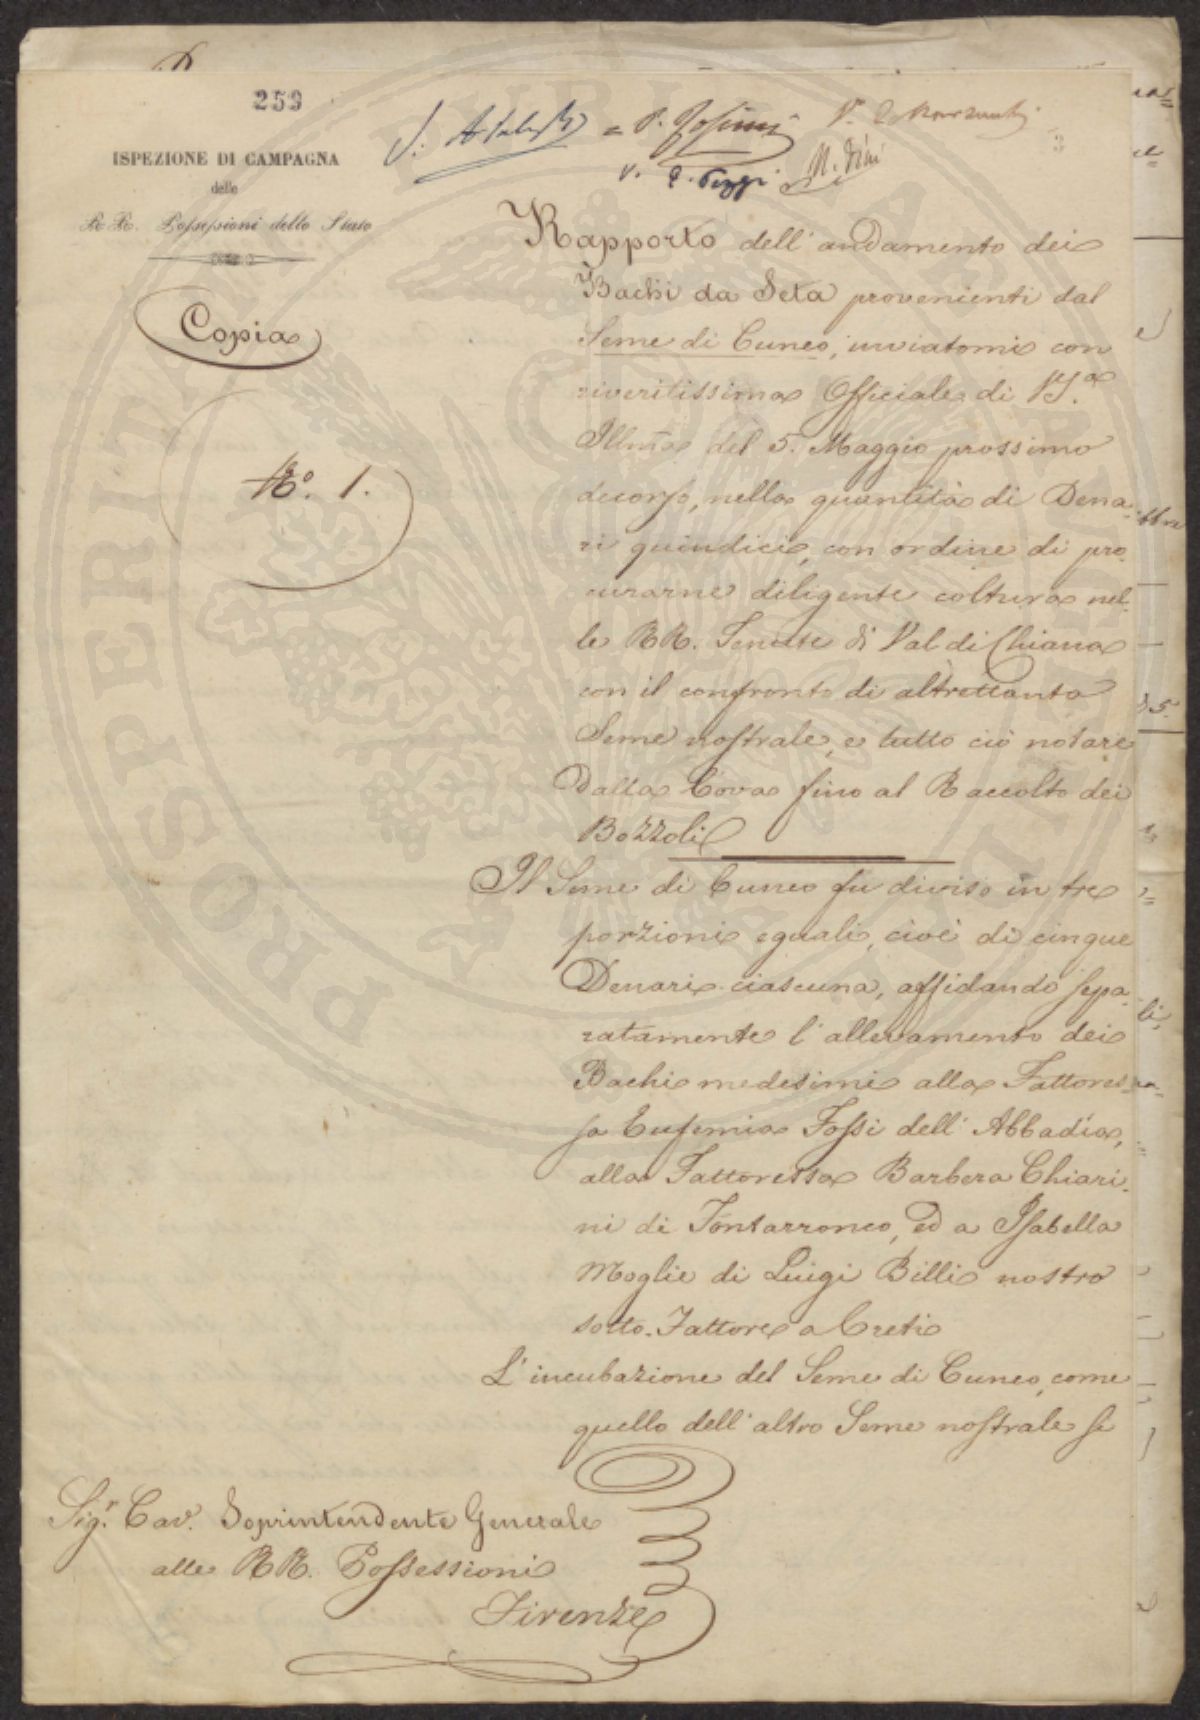 259
ISPEZIONE DI CAMPAGNA
delle
RR. Possessioni dello Stato
Copia
N.º 1.
V. E. Poggi N. Dini
Rapporto dell'andamento dei
Bachi da Seta provenienti dal
Seme di Cuneo, inviatomi con
riveritissima Officiale di VS.ª
Illma del 5. Maggio prossimo
decorso, nella quantità di Dena-
ri quindici, con ordine di pro-
curarne diligente coltura nel-
le RR. Tenute di Val di Chiana
con il confronto di altrettanto
Seme nostrale, e tutto ciò notare
Dalla Cova fino al Raccolto dei
Bozzoli
Il Seme di Cuneo fu diviso in tre
porzioni eguali, cioè di cinque
Denari ciascuna, affidando sepa-
ratamente l'allevamento dei
Bachi medesimi alla Fattores-
sa Eufemia Fossi dell'Abbadia,
alla Fattoressa Barbera Chiari-
ni di Fontarronco, ed a Isabella
Moglie di Luigi Billi nostro
sotto-Fattore a Creti
L'incubazione del Seme di Cuneo, come
quello dell'altro Seme nostrale si
Sig.r Cav. Soprintendente Generale
alle RR. Possessioni
Firenze
PROSPERITATI PUBLICAE